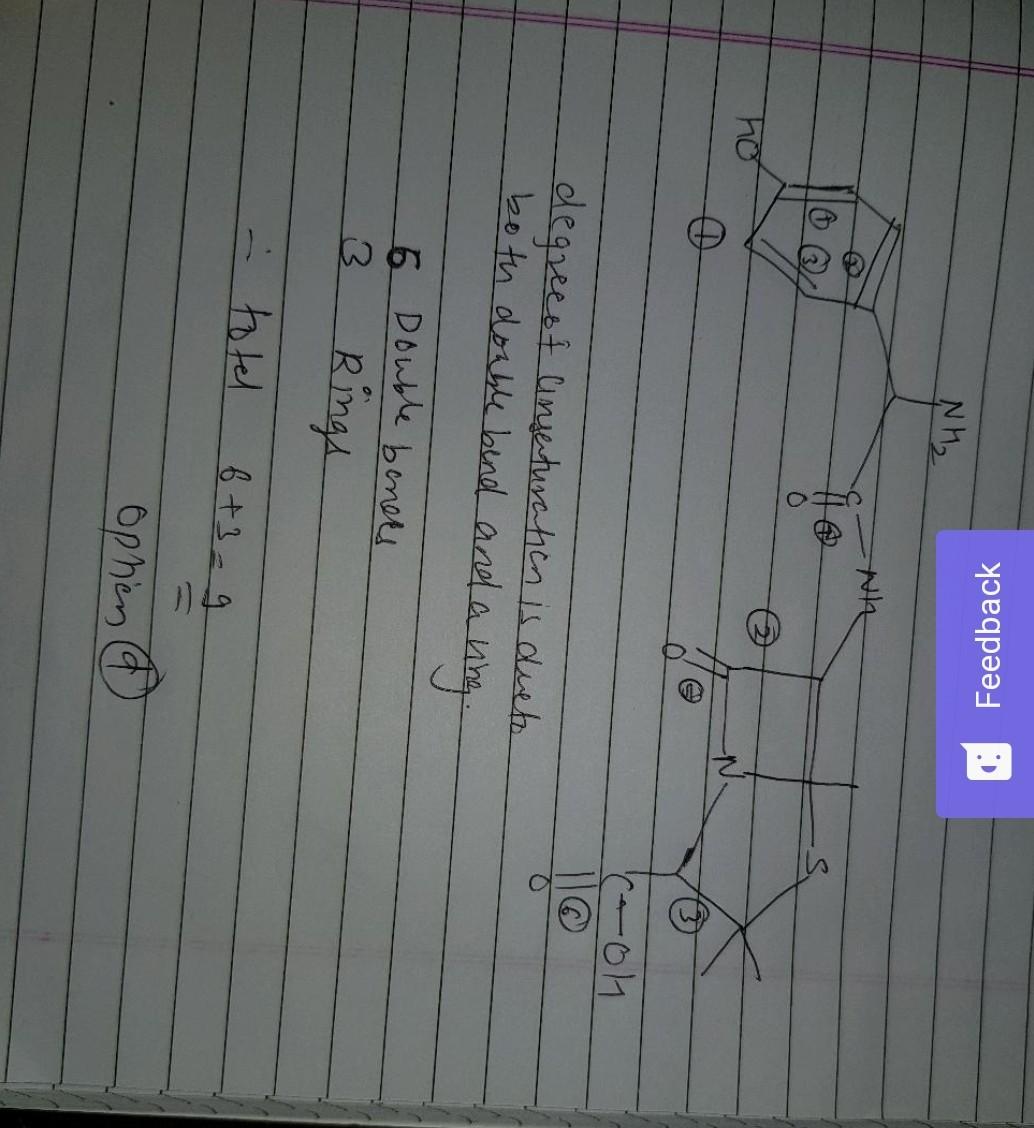 NH₂
HO
① ② ③
①
C
||
O
④
NH
②
O
⑤
N
S
③
C—OH
||
O
⑥
degree of Unseturation is due to
both double bond and a ring.
6 Double bonds
3 Rings
∴ totel 6+3=9
Option ⓓ
Feedback